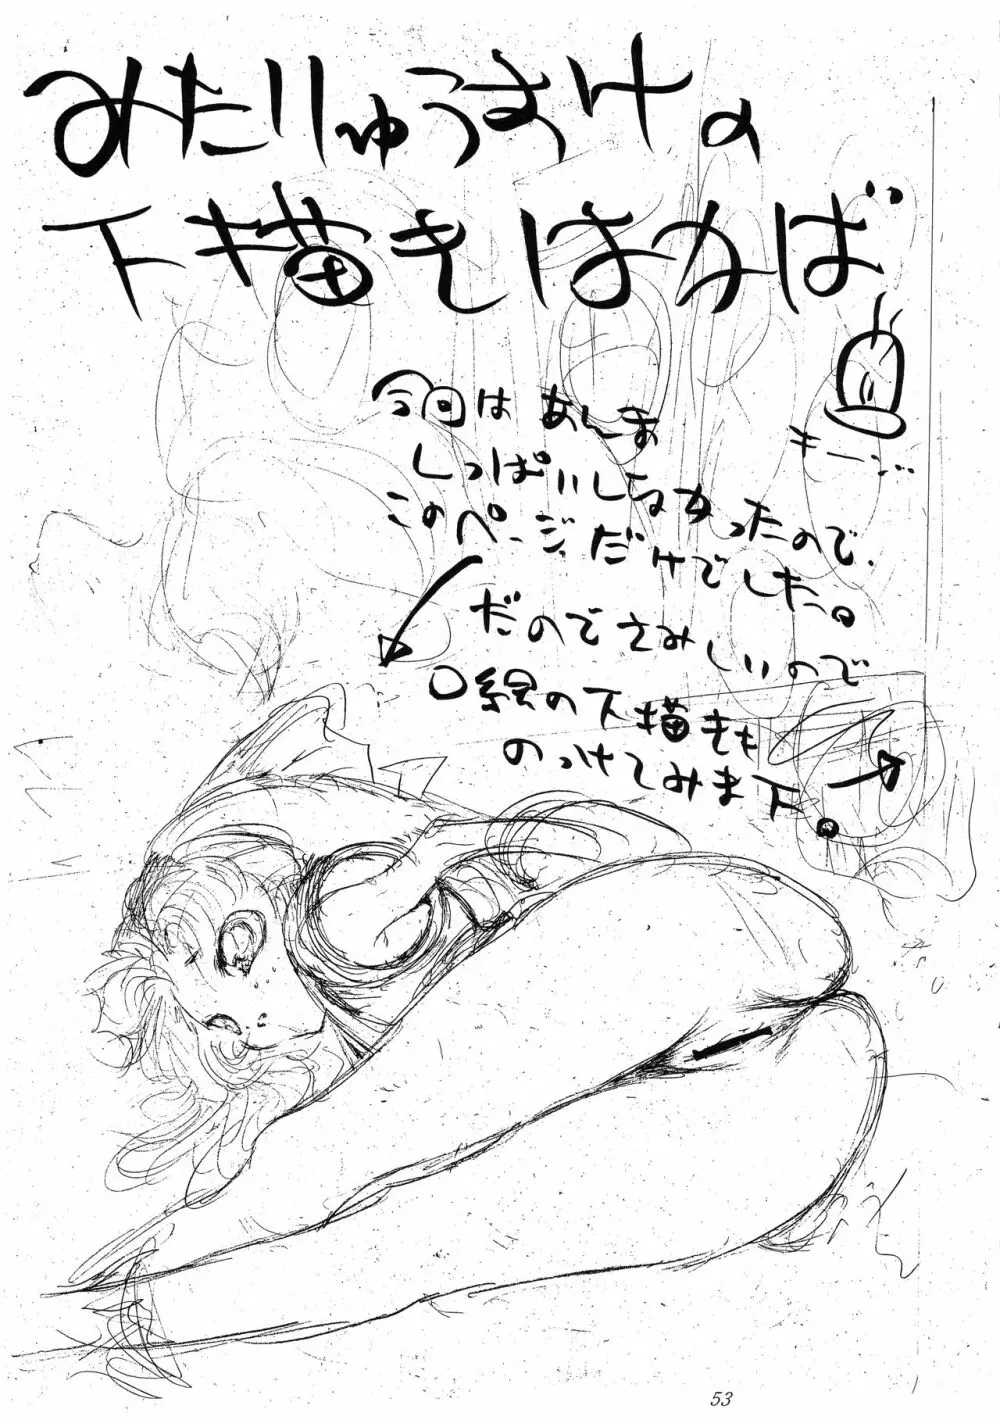 みたりゅうすけの
下描きはかば
キーン…
今回は あんま
しっぱいしなかったので、
このページだけでした。
だのでさみしいので
口絵の下描きも
のっけてみま下。
53